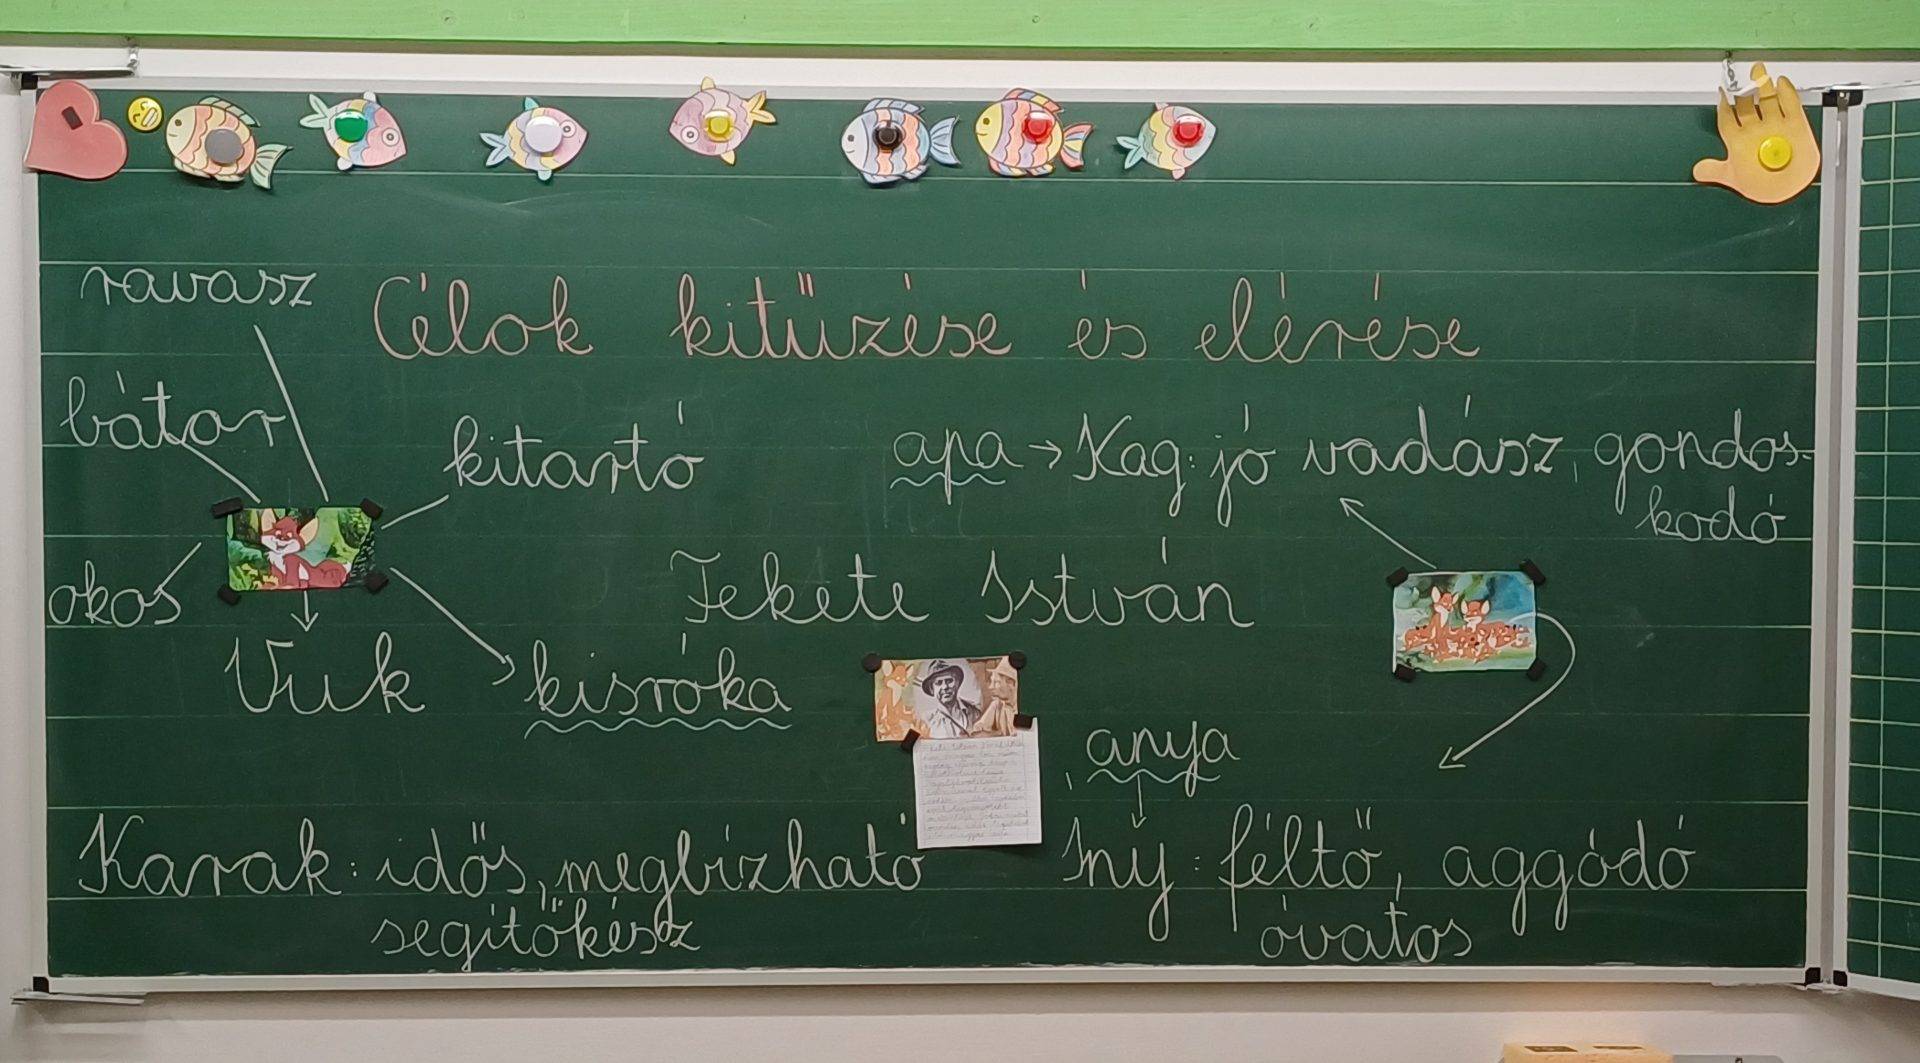 ravasz
Célok kitűzése és elérése
bátor
kitartó
apa → Kag: jó vadász, gondos-
kodó
okos
Fekete István
Vuk
kisróka
anya
Karak: idős, megbízható
segítőkész
Íny: féltő, aggódó
óvatos